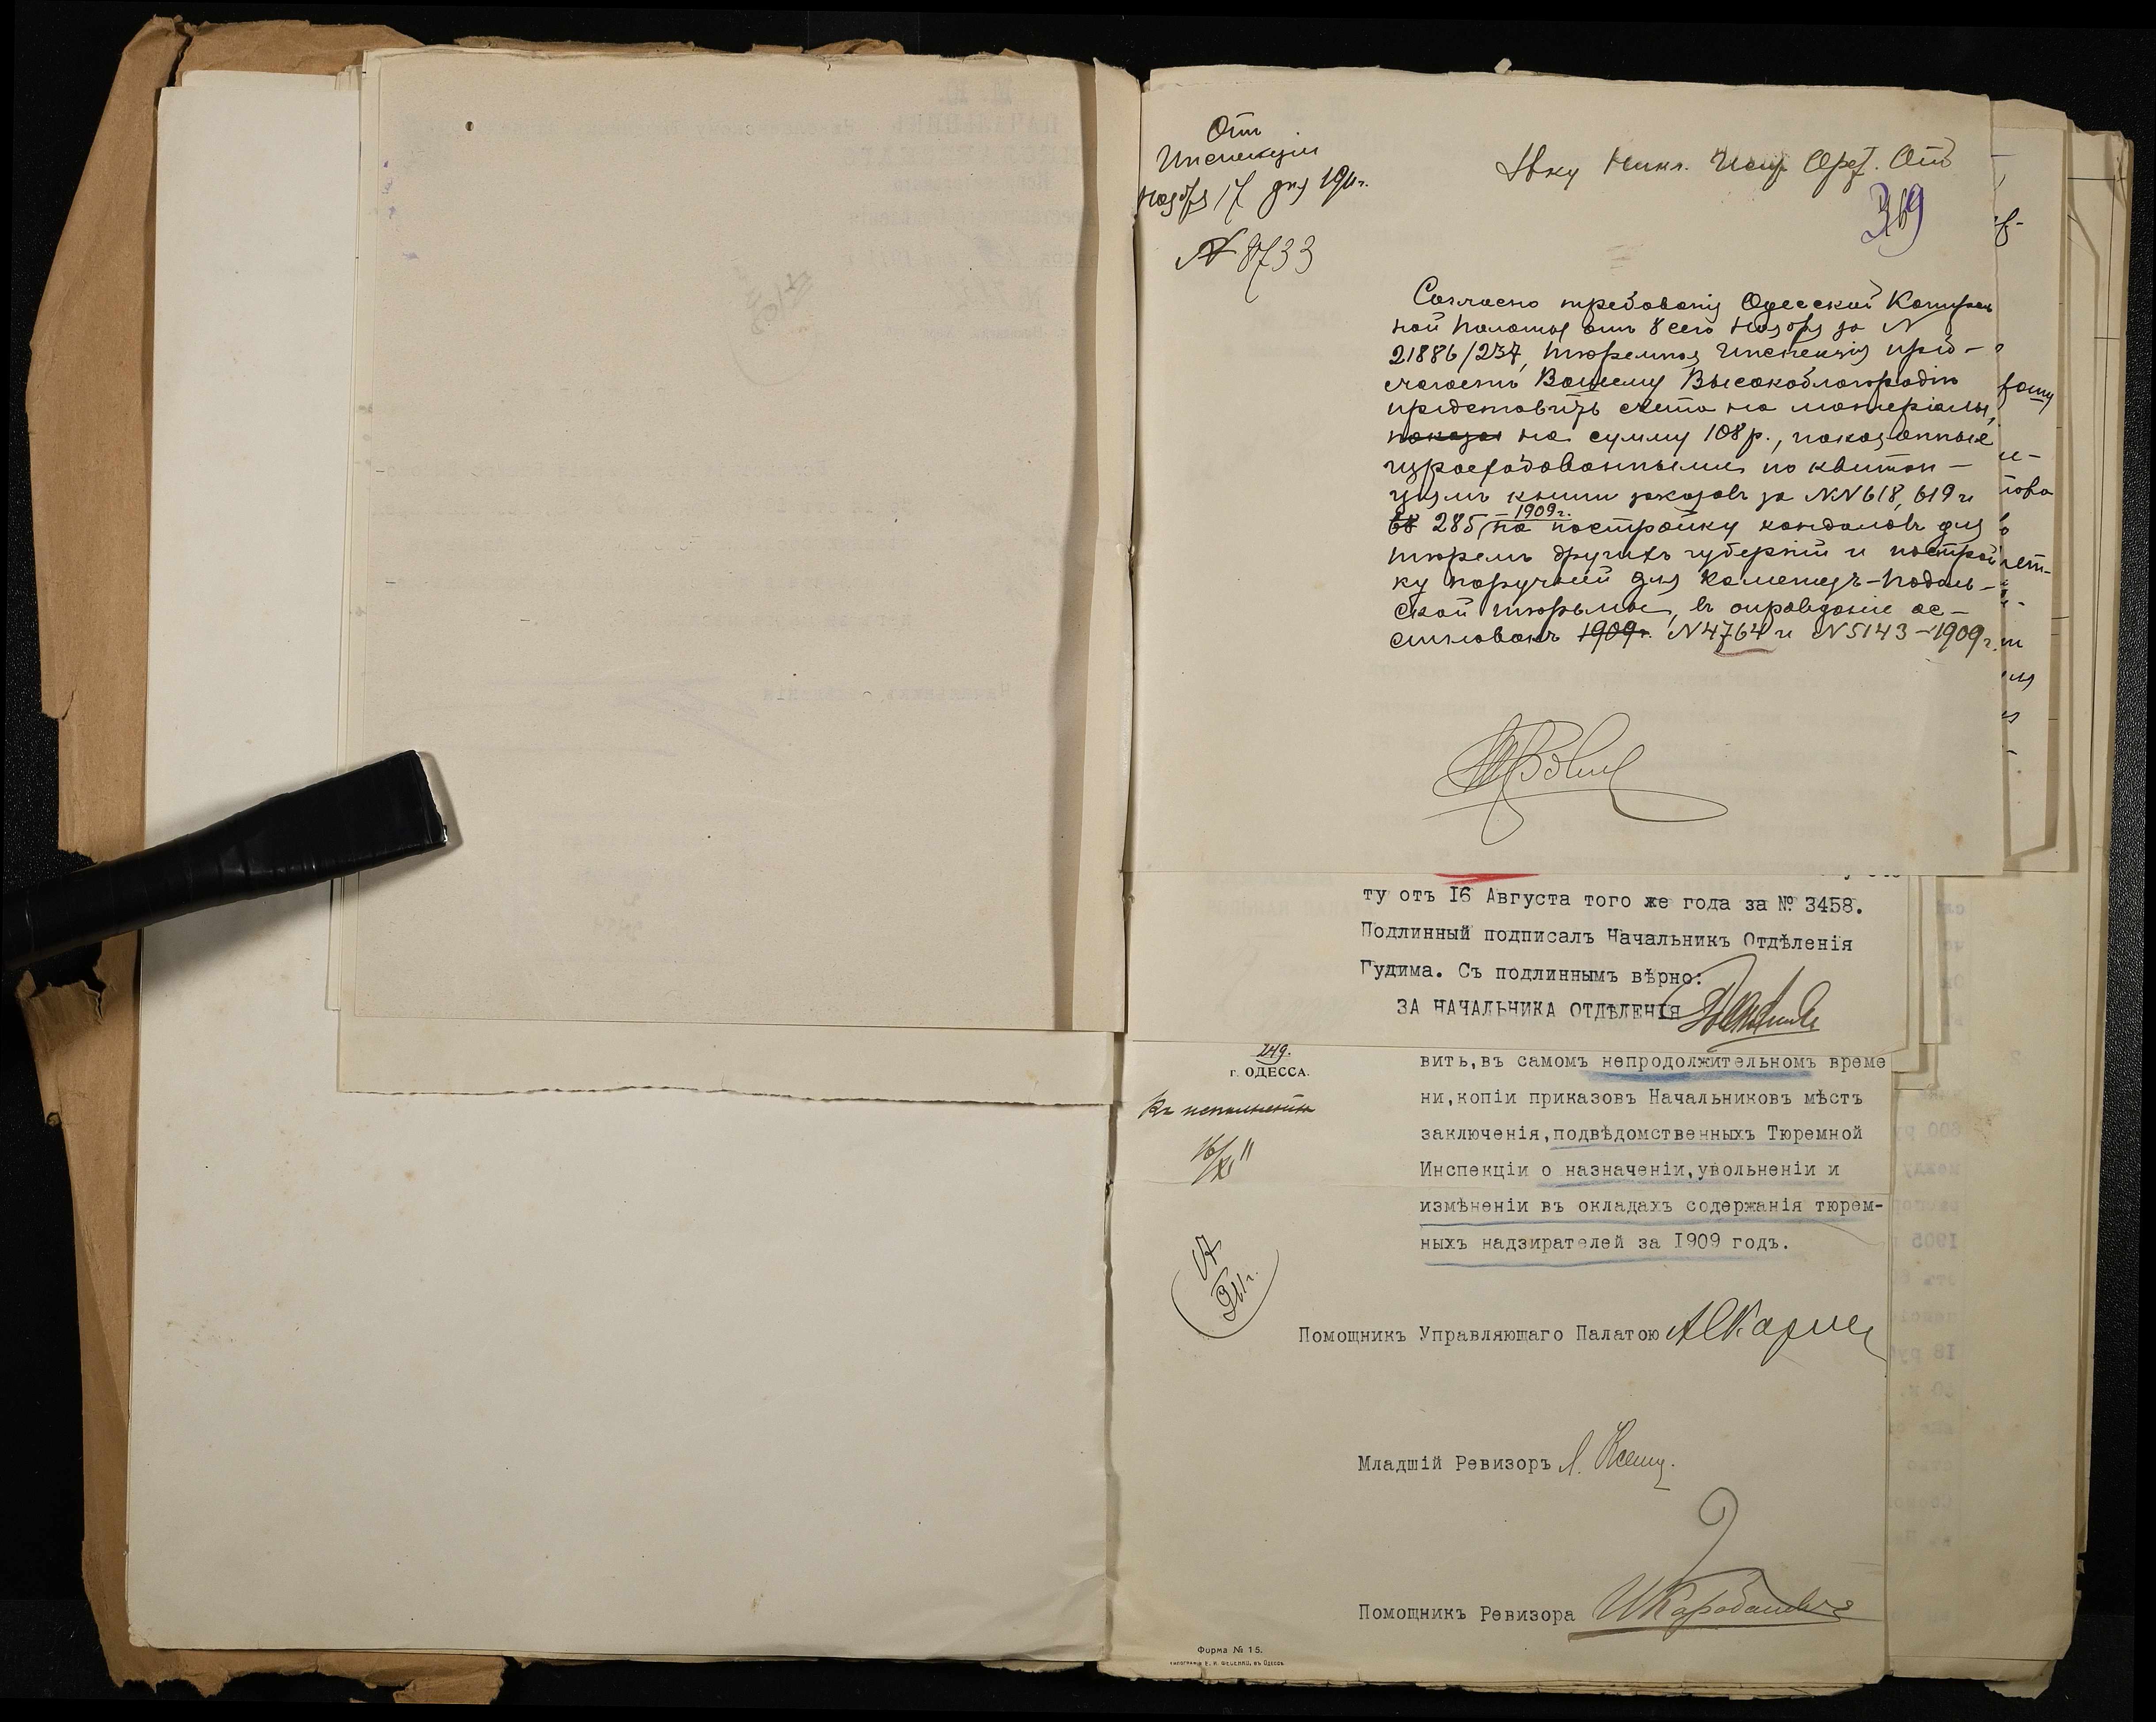 Отъ
Инспекціи
Ноября 17 дня 1911 г.
№ 8733
Нику Никл. Испр. Арест. Отд
369
Согласно требованія Одесской Контроль
ной Палаты отъ 8 сего Ноября за №
21886/237, Тюремная Инспекція пред-
лагаетъ Вашему Высокоблагородію
представить счета на матеріалы,
показан на сумму 108 р., показанные
израсходованными по квитан-
ціямъ книги заказовъ за NN 618, 619 и
285 – 1909 г. на постройку кандаловъ для
тюремъ другихъ губерній и построй
ку поручней для Каменецъ-Подоль-
ской тюрьмы, въ оправданіе ас-
сигновокъ 1909 г. N 4764 и N 5143 – 1909 г.
ту отъ 16 Августа того же года за № 3458.
Подлинный подписалъ Начальникъ Отдѣленія
Гудима. Съ подлиннымъ вѣрно:
ЗА НАЧАЛЬНИКА ОТДѢЛЕНІЯ
249.
г. ОДЕССА.
Къ исполненію
16/XI 11
вить,въ самомъ непродолжительномъ време
ни,копіи приказовъ Начальниковъ мѣстъ
заключенія,подвѣдомственныхъ Тюремной
Инспекціи о назначеніи,увольненіи и
измѣненіи въ окладахъ содержанія тюрем-
ныхъ надзирателей за 1909 годъ.
Помощникъ Управляющаго Палатою
Младшій Ревизоръ
Помощникъ Ревизора
Форма № 15.